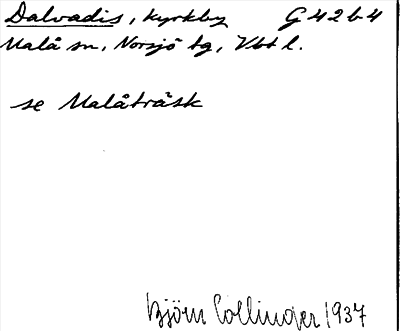 Dalvadis, kyrkby G 42 b 4
Malå sn, Norsjö tg, Vbt l.
se Malåträsk
Björn Collinder 1937